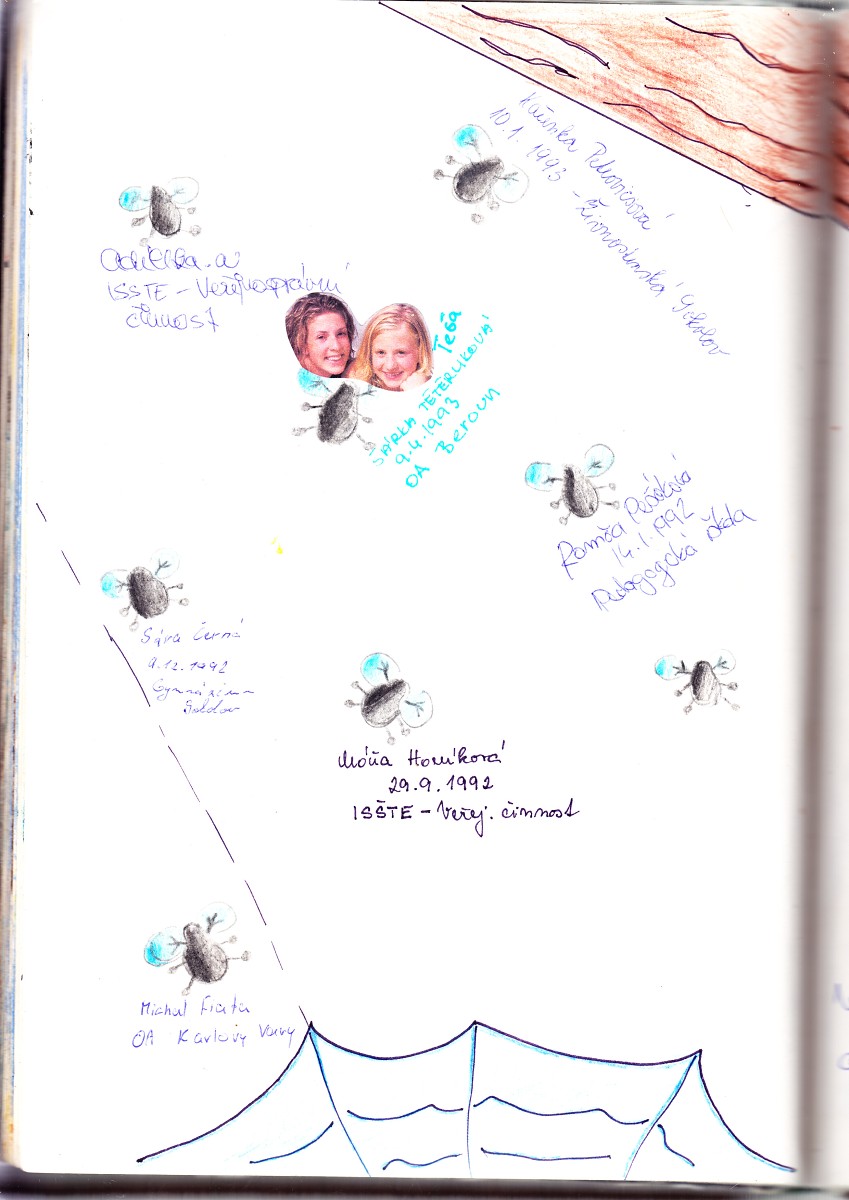 10.1.1993 - Živnostenská Sokolov
ISŠTE - Veřejnosprávní
činnost
Téťa
ŠÁRKA TETERLIKOVÁ
9.4.1993
OA Beroun
14.1.1992
Pedagogická škola
Sára Černá
9.12.1992
Gymnázium
Sokolov
Móňa Horníková
29.9.1992
ISŠTE - Veřej. činnost
Michal
OA Karlovy Vary